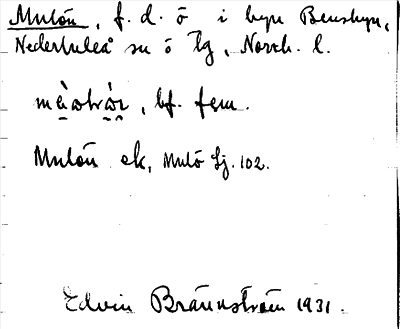 Mulön, f. d. ö i byn Bensbyn,
Nederluleå sn ö lg, Norrb. l.
bf. fem.
Mulön ek, Mulö Lj. 102.
Edvin Brännström 1931.